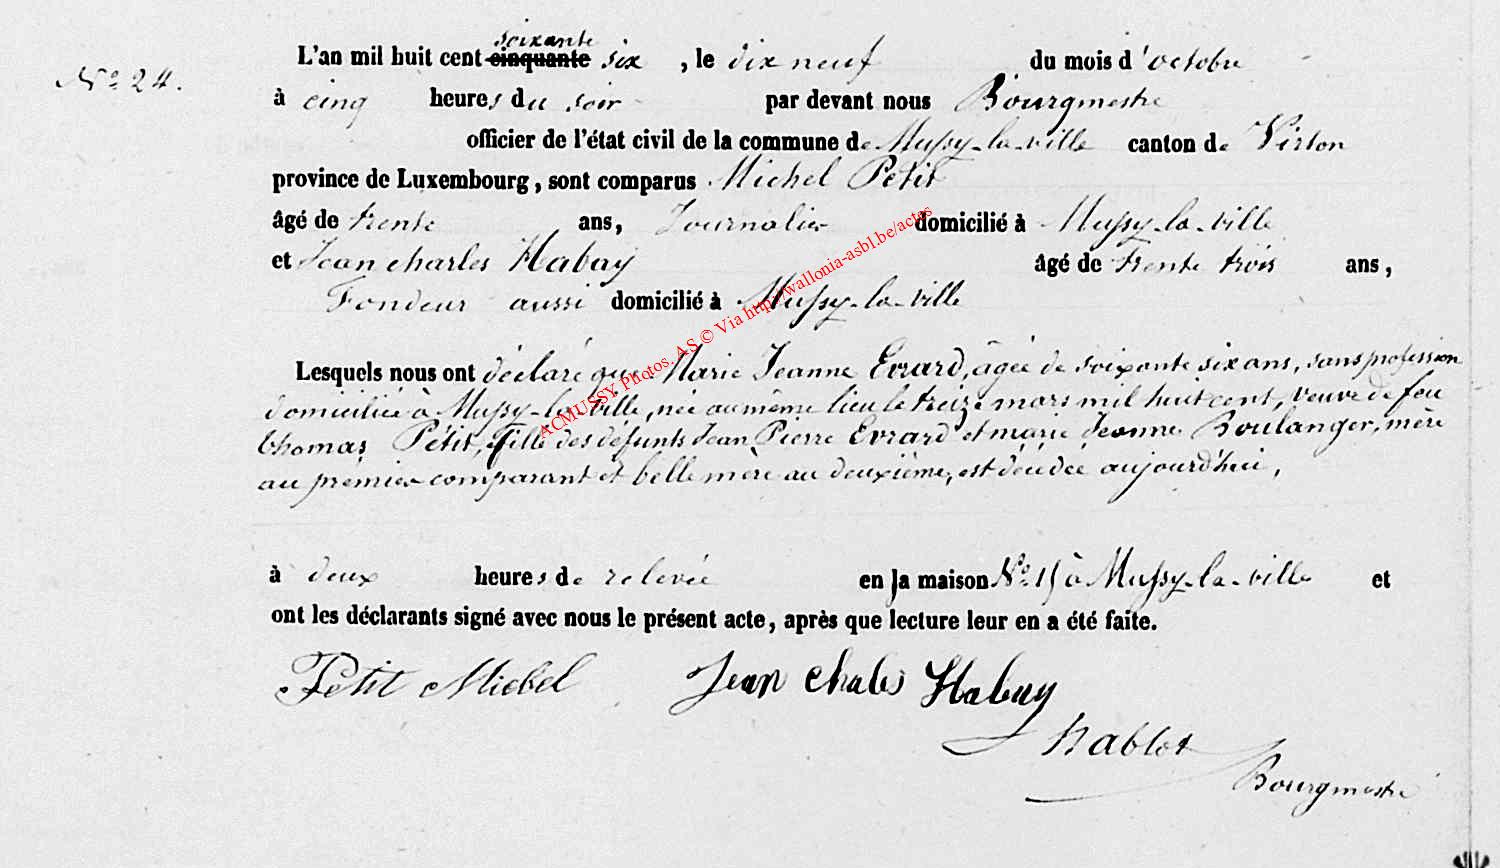 soixante
L'an mil huit cent cinquante six, le dix neuf du mois d'octobre
Nº 24.
à cinq heures du soir par devant nous Bourgmestre
officier de l'état civil de la commune de Mussy-la-ville canton de Virton
province de Luxembourg, sont comparus Michel Petit
âgé de trente ans, Journalier domicilié à Mussy-la-ville
et Jean charles Habay âgé de trente trois ans,
Fondeur aussi domicilié à Mussy-la-ville
Lesquels nous ont déclaré que Marie Jeanne Evrard, âgée de soixante six ans, sans profession
domiciliée à Mussy-la-ville, née au même lieu le treize mars mil huit cent, veuve de feu
thomas Petit, fille des défunts Jean Pierre Evrard et marie Jeanne Boulanger, mère
au premier comparant et belle mère au deuxième, est décédée aujourd'hui,
à deux heures de relevée en sa maison Nº 15 à Mussy-la-ville et
ont les déclarants signé avec nous le présent acte, après que lecture leur en a été faite.
Petit Michel Jean Chales Habay
Bourgmestre
ACMUSSY, Photos. AS © Via http://wallonia-asbl.be/actes